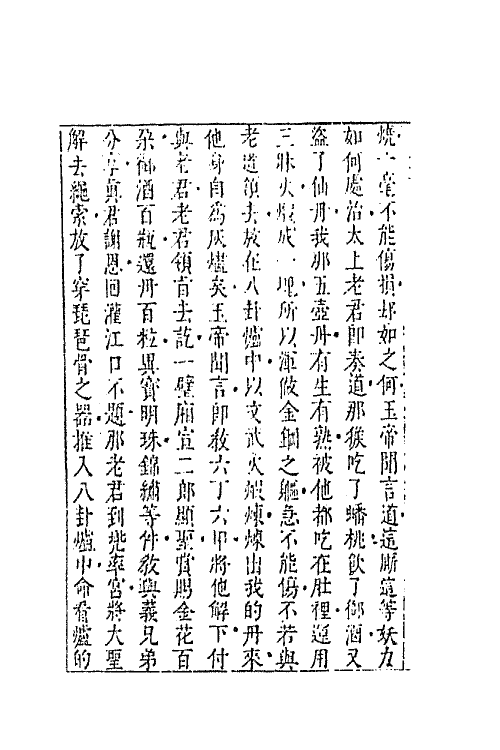 燒一毫不能傷損却如之何玉帝聞言道這厮這等妖力
如何處治太上老君即奏道那猴吃了蟠桃飲了御酒又
盜了仙丹我那五壺丹有生有熟被他都吃在肚裡運用
三昧火煅成一塊所以渾做金鋼之軀急不能傷不若與
老道領去放在八卦爐中以文武火煅煉煉出我的丹來
他身自爲灰燼矣玉帝聞言即教六丁六甲將他解下付
與老君老君領旨去訖一壁廂宣二郎顯聖賞賜金花百
朶御酒百瓶還丹百粒異寶明珠錦繡等件敎與義兄弟
分享眞君謝恩回灌江口不題那老君到兜率宮將大聖
解去繩索放了穿琵琶骨之器推入八卦爐中命看爐的